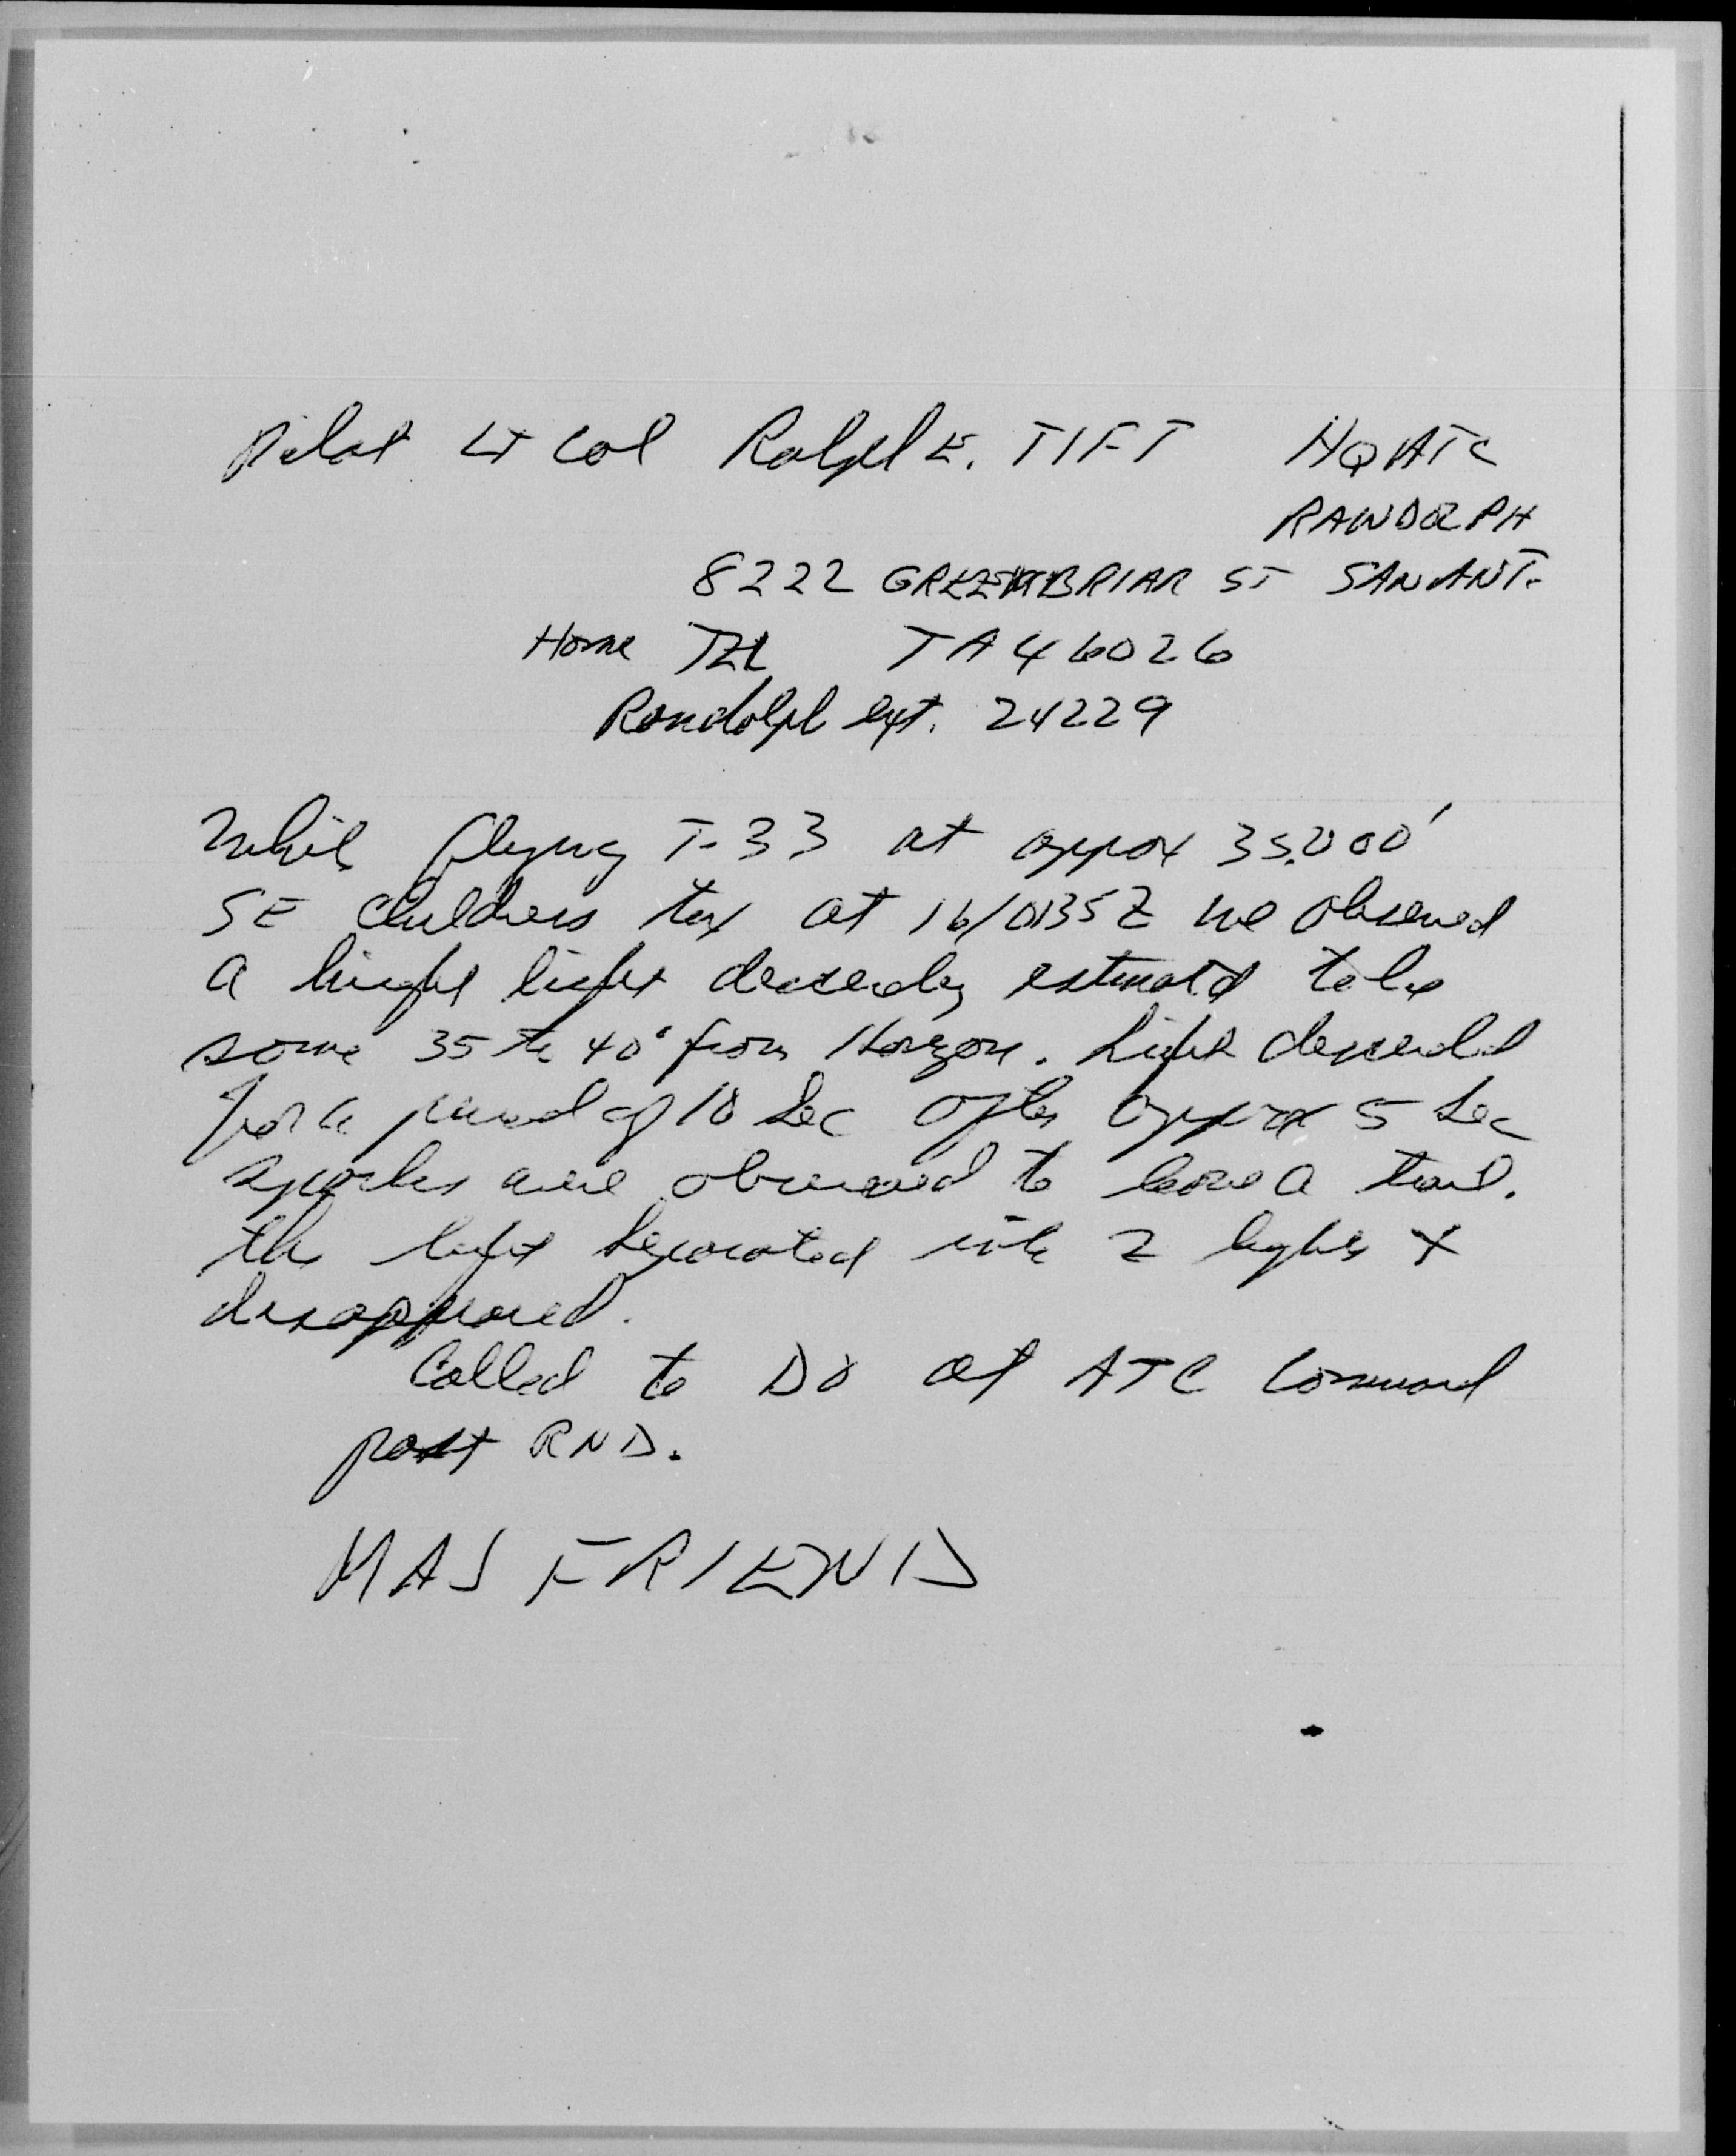 Pilot Lt Col Ralph E. TIFT HQ ATC
RANDOLPH
8222 GREENBRIAR ST SAN ANT.
Home TEL TA46026
Randolph ext. 24229
While flying T-33 at appox 35,000'
SE Childress tex at 16/0135Z we observed
a bright light descending estimated to be
some 35 to 40° from Horizon. Light descended
for a period of 10 sec after approx 5 sec
sparks were observed to leave a trail.
the light separated into 2 lights +
disappeared.
Called to DO at ATC Command
post RND.
MAJ FRIEND